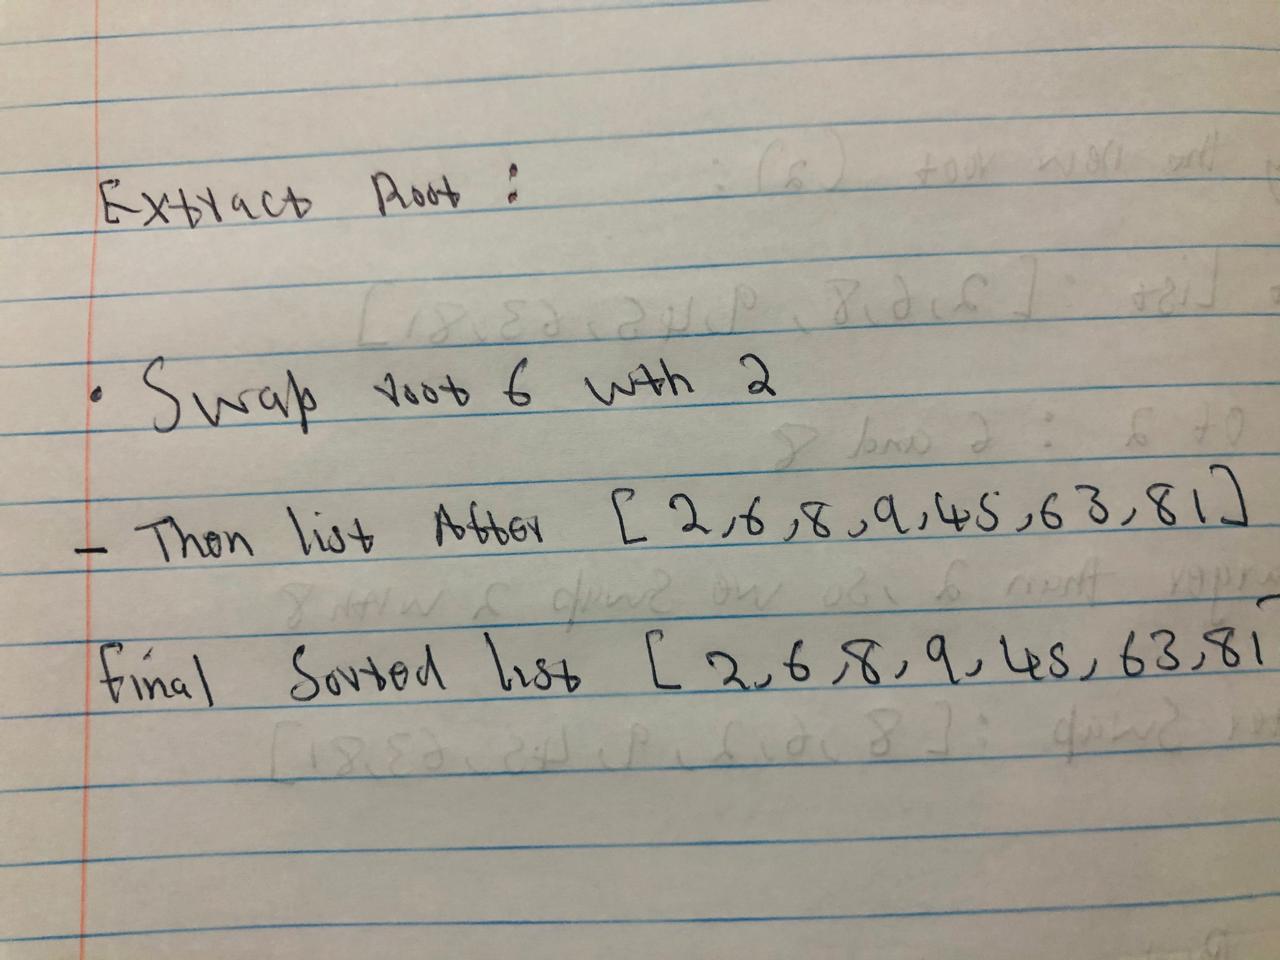 Extract Root :
• Swap root 6 wth 2
- Then list After [ 2,6,8,9,45,63,81]
final Sorted list [ 2,6,8,9,45,63,81]